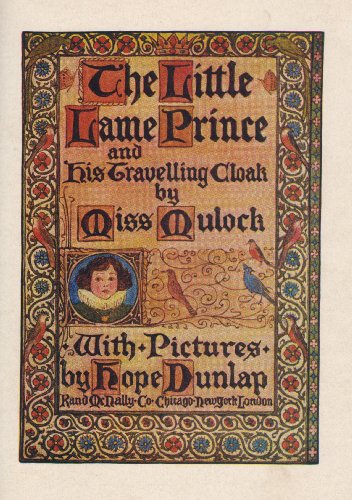 The Little
Lame Prince
and
His Travelling Cloak
by
Miss Mulock
·With·Pictures·
by Hope Dunlap
Rand McNally·Co·Chicago·New York·London